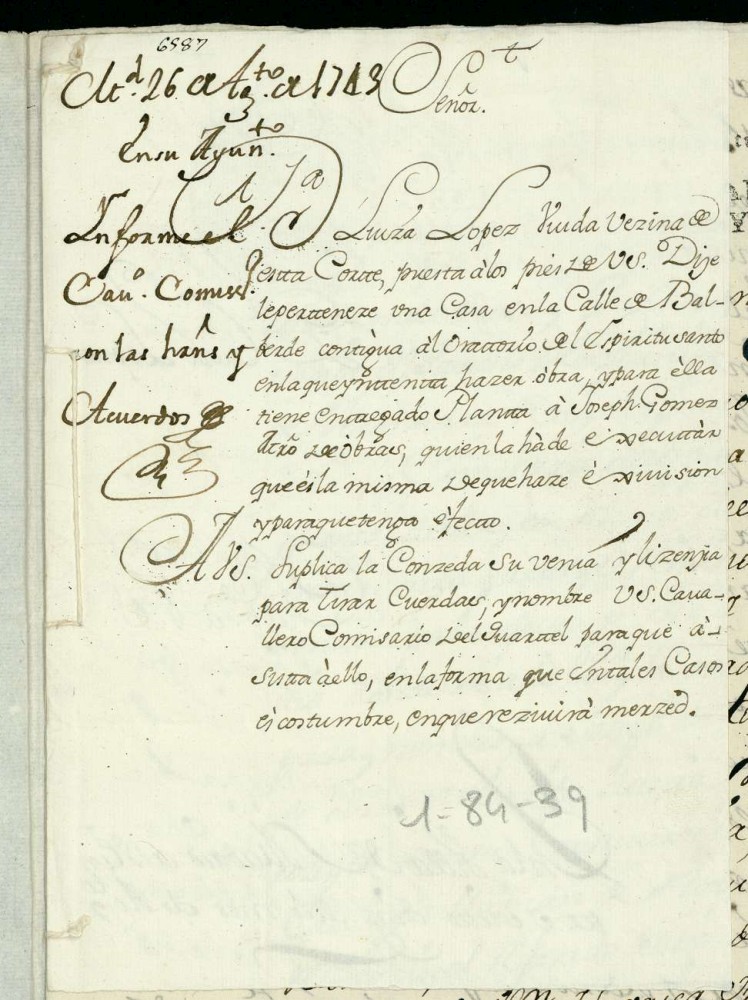 6587
Md. 26 de Agto. de 1713
En su Ayunto.
Informe el
Cavo. Comissro.
con las hazñs y
Acuerdos de
Señor.
Luisa Lopez Viuda Vezina de
esta Corte, puesta à los pies de VS. Dize
le pertteneze vna Casa en la Calle de Bal-
berde contigua àl Orattorio del Espiritu santo
en la que yntentta hazer òbra, y para èlla
tiene enttregado Plantta à Joseph Gomez
Mro de òbras, quien la hà de èxecuttàr
que ès la misma de que haze èxivision
y para que tenga èfecto.
A VS. Suplica la Conzeda su venia y lizenzia
para tirar Cuerdas, y nombre VS. Cava-
llero Comisario del Quarttel para que à-
sista à ello, en la forma que en tales Casos
es costumbre, en que rezivirà merzed.
1-84-39